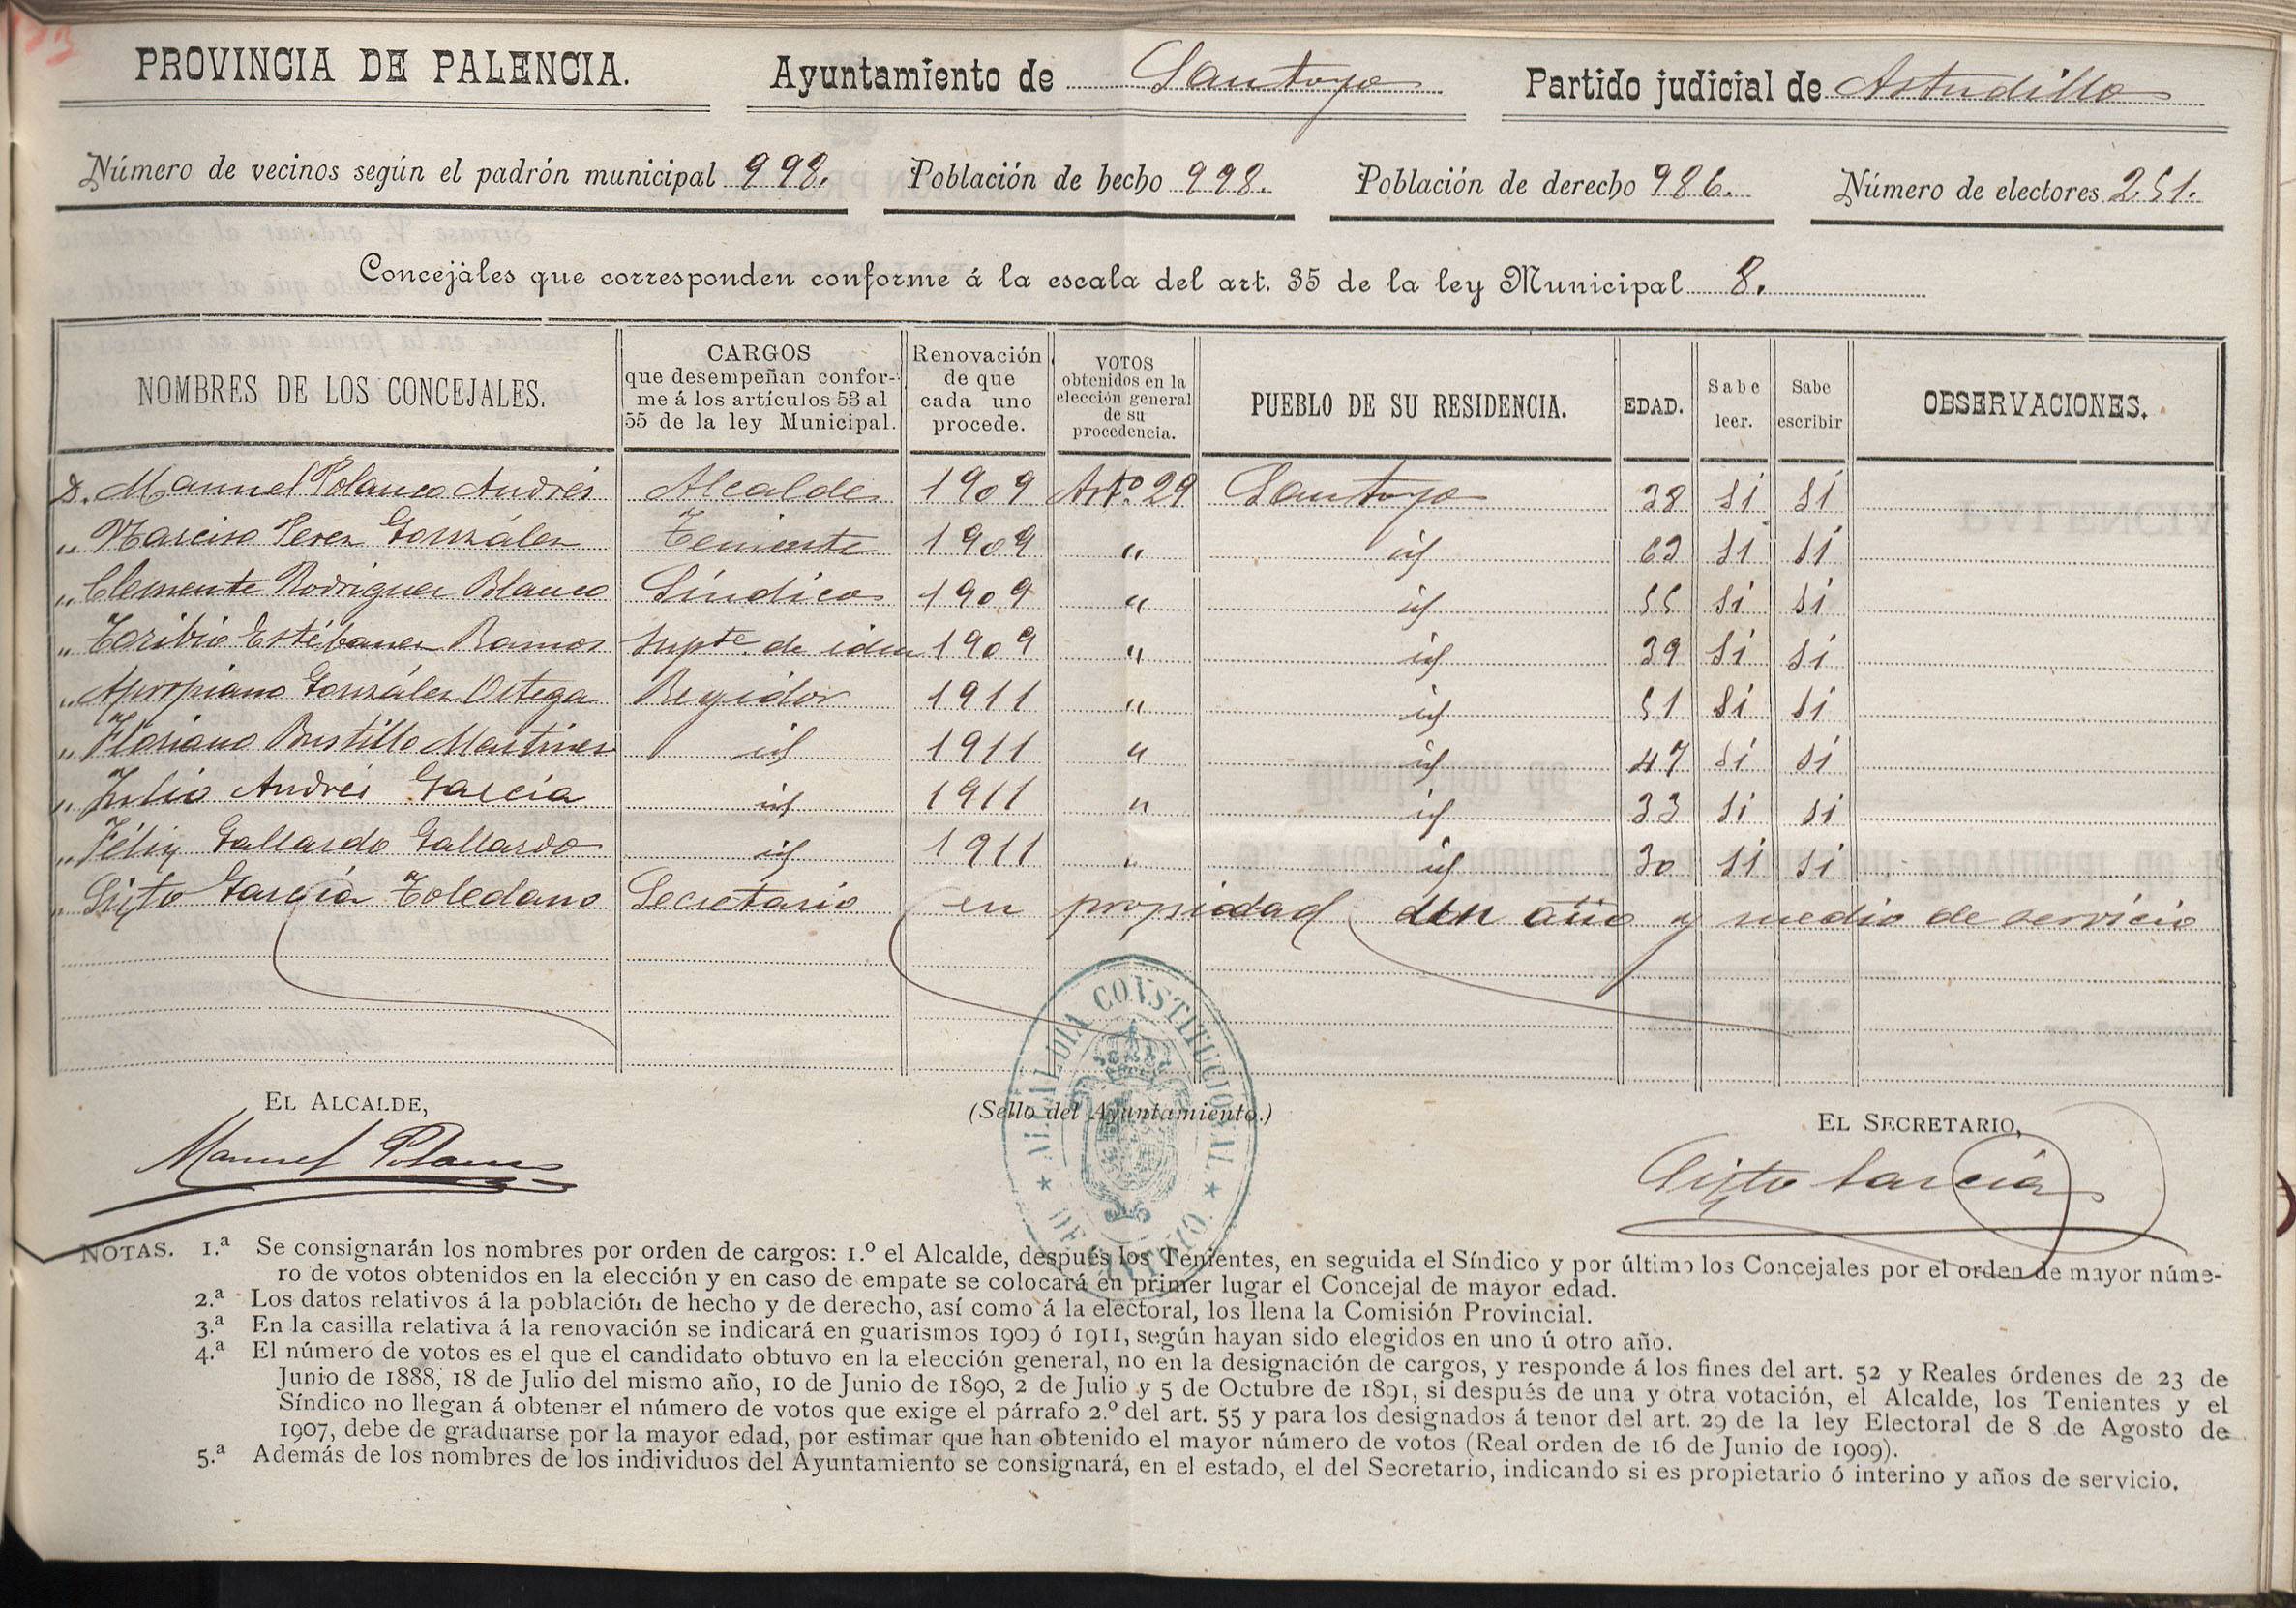 PROVINCIA DE PALENCIA. Ayuntamiento de Santoyo Partido judicial de Astudillo
Número de vecinos según el padrón municipal 998. Población de hecho 998. Población de derecho 986. Número de electores 251.
Concejales que corresponden conforme á la escala del art. 35 de la ley Municipal 8.
NOMBRES DE LOS CONCEJALES.
CARGOS
que desempeñan confor-
me á los artículos 53 al
55 de la ley Municipal.
Renovación
de que
cada uno
procede.
VOTOS
obtenidos en la
elección general
de su
procedencia.
PUEBLO DE SU RESIDENCIA.
EDAD.
Sabe
leer.
Sabe
escribir
OBSERVACIONES.
D. Manuel Polanco Andrés Alcalde 1909 Artº. 29 Santoyo 38 si si
" Narciso Perez González Teniente 1909 " id 63 si si
" Clemente Rodriguez Blanco Síndico 1909 " id 55 si si
" Toribio Estébanez Ramos Supte. de idem 1909 " id 39 si si
" Apropiano González Ortega Regidor 1911 " id 51 si si
" Floriano Bustillo Martinez id 1911 " id 47 si si
" Julio Andrés García id 1911 " id 33 si si
" Félix Gallardo Gallardo id 1911 " id 30 si si
" Sixto García Toledano Secretario en propiedad un año y medio de servicio
EL ALCALDE,
Manuel Polanco
(Sello del Ayuntamiento.)
ALCALDIA CONSTITUCIONAL
EL SECRETARIO,
Sixto García
NOTAS. 1.ª Se consignarán los nombres por orden de cargos: 1.º el Alcalde, después los Tenientes, en seguida el Síndico y por último los Concejales por el orden de mayor núme-
ro de votos obtenidos en la elección y en caso de empate se colocará en primer lugar el Concejal de mayor edad.
2.ª Los datos relativos á la población de hecho y de derecho, así como á la electoral, los llena la Comisión Provincial.
3.ª En la casilla relativa á la renovación se indicará en guarismos 1909 ó 1911, según hayan sido elegidos en uno ú otro año.
4.ª El número de votos es el que el candidato obtuvo en la elección general, no en la designación de cargos, y responde á los fines del art. 52 y Reales órdenes de 23 de
Junio de 1888, 18 de Julio del mismo año, 10 de Junio de 1890, 2 de Julio y 5 de Octubre de 1891, si después de una y otra votación, el Alcalde, los Tenientes y el
Síndico no llegan á obtener el número de votos que exige el párrafo 2.º del art. 55 y para los designados á tenor del art. 29 de la ley Electoral de 8 de Agosto de
1907, debe de graduarse por la mayor edad, por estimar que han obtenido el mayor número de votos (Real orden de 16 de Junio de 1909).
5.ª Además de los nombres de los individuos del Ayuntamiento se consignará, en el estado, el del Secretario, indicando si es propietario ó interino y años de servicio.